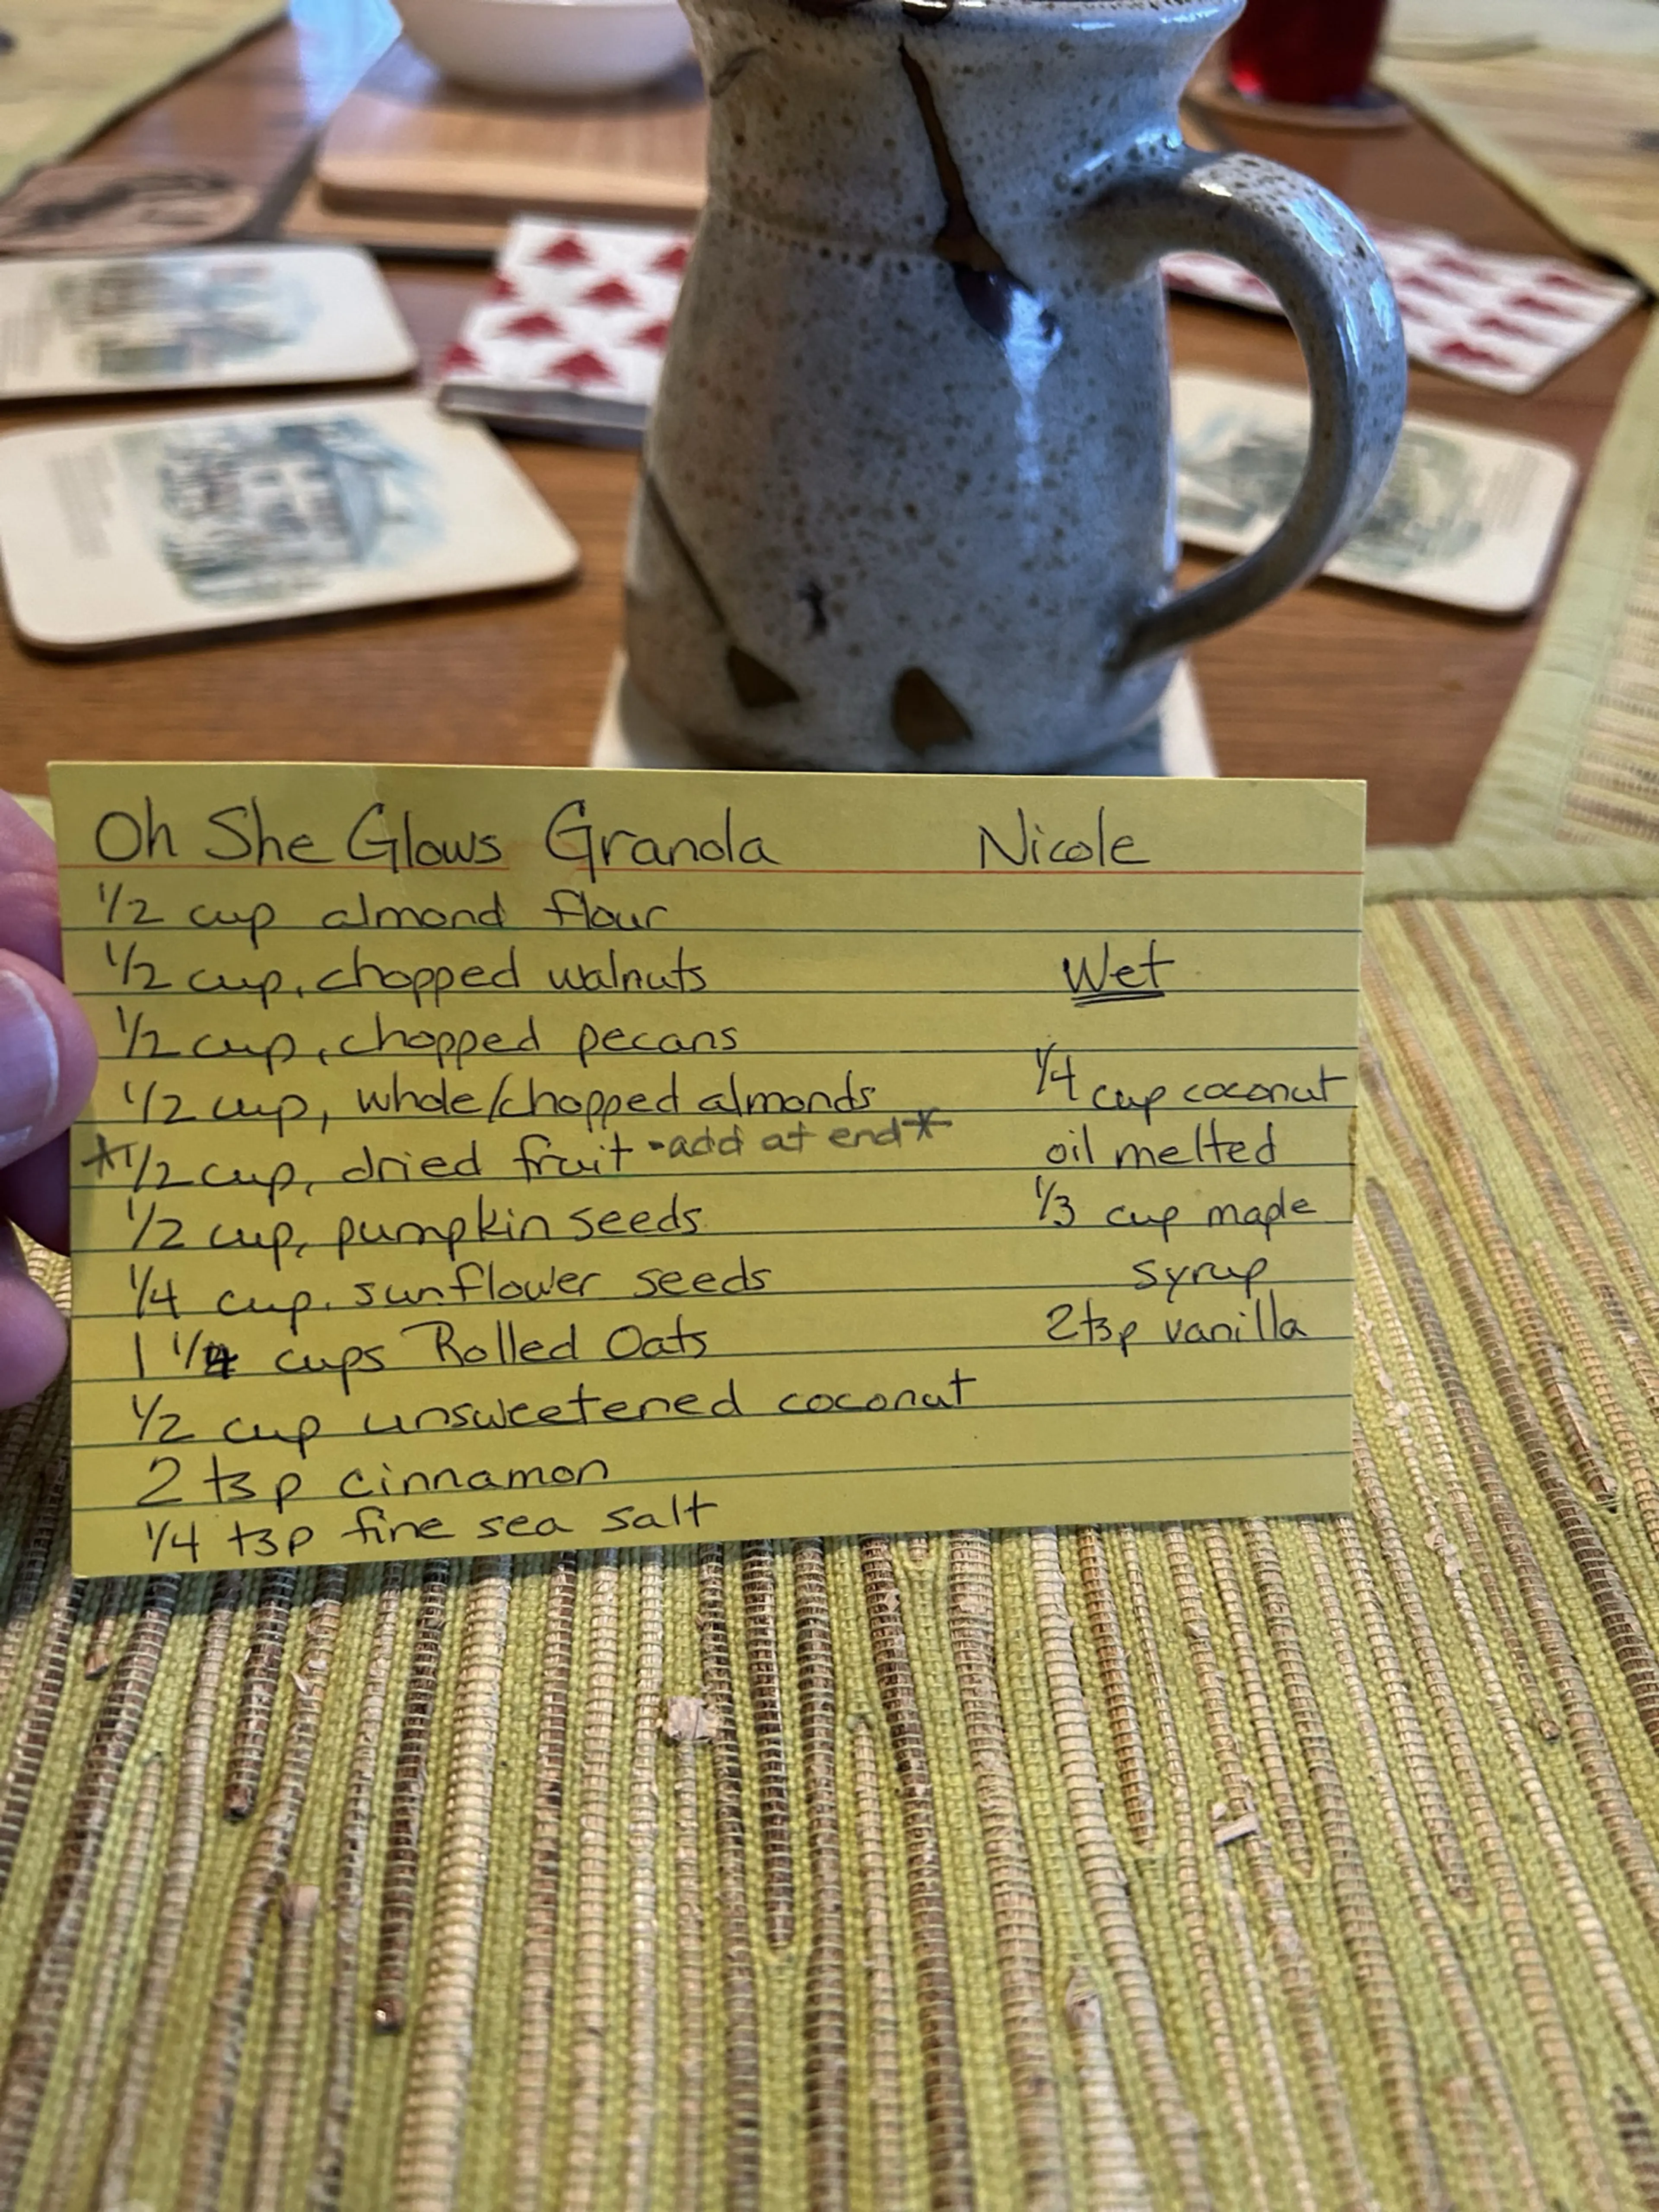 Oh She Glows Granola Nicole
1/2 cup almond flour
1/2 cup, chopped walnuts
1/2 cup, chopped pecans
1/2 cup, whole/chopped almonds
*1/2 cup, dried fruit - add at end*
1/2 cup, pumpkin seeds
1/4 cup, sunflower seeds
1 1/4 cups Rolled Oats
1/2 cup unsweetened coconut
2 tsp cinnamon
1/4 tsp fine sea salt
Wet
1/4 cup coconut
oil melted
1/3 cup maple
syrup
2 tsp vanilla